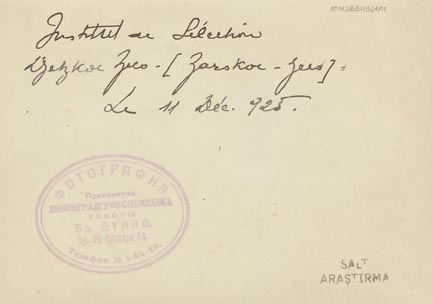 AFMSBBH061A1
Institut de Sélection
Djetzkoe Zelo - [Zarskoe - Zelo] =
Le 11 Déc. 925.
ФОТОГРАФИЯ
Президиума
ЛЕНИНГРАДГУБИСПОЛКОМА
РАБОТЫ
Бр. БУЛЛА.
Пр. 25 Октября 54.
Телефон №
SALT
ARAŞTIRMA